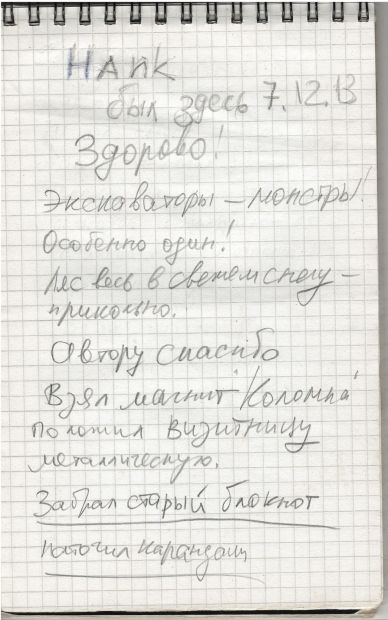 НАПК
был здесь 7.12.13
Здорово!
Экскаваторы – монстры!
Особенно один!
Лес весь в свежем снегу –
прикольно.
Автору спасибо
Взял магнит "Коломна"
Положил визитницу
металлическую.
Забрал старый блокнот
Наточил карандаш